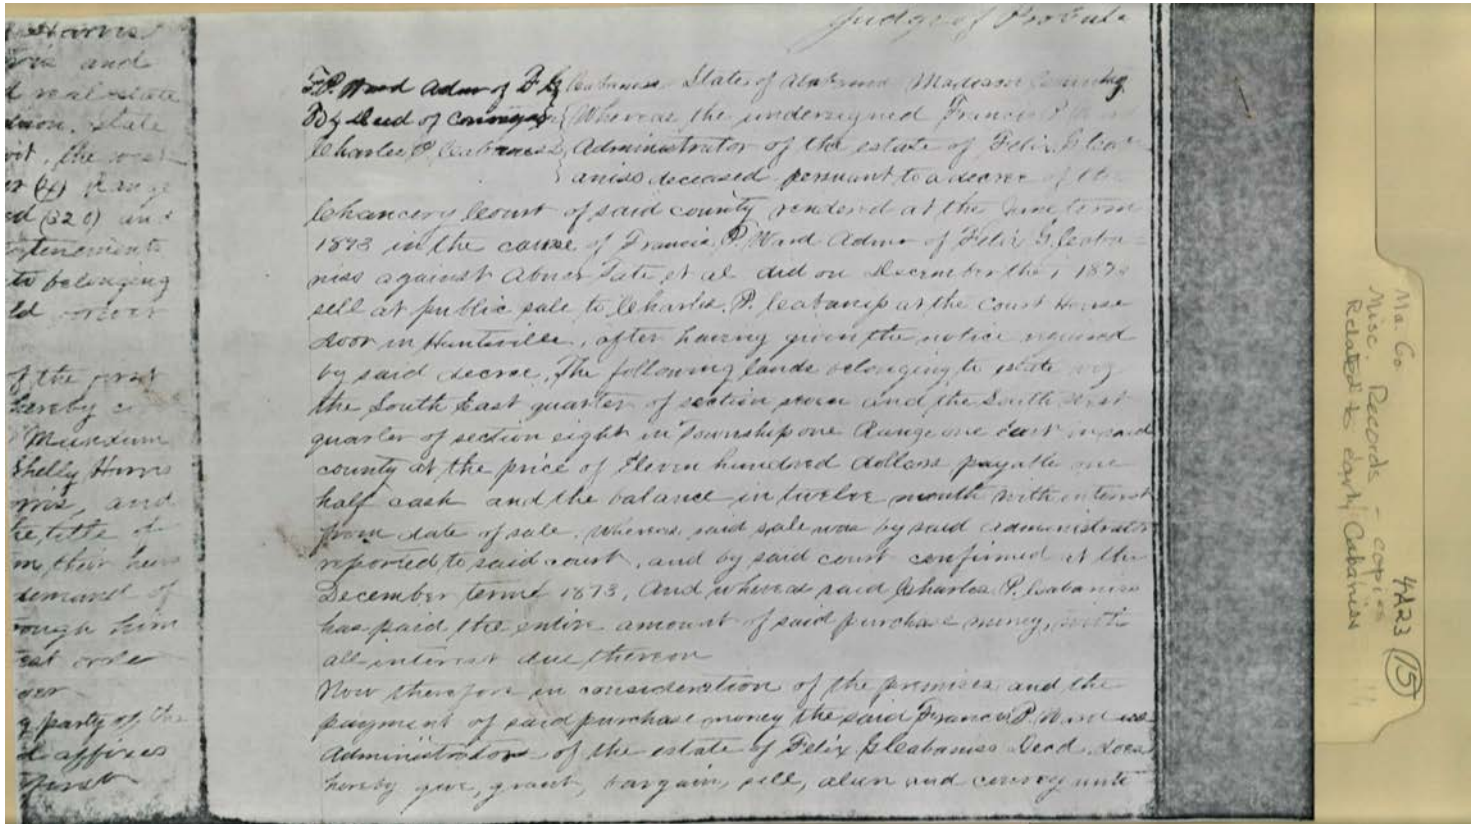 Harris
and
real estate
State
wit, the west
(4) range
(320) and
tenements
belonging
of the first
hereby
Mundum
Shelly Harris
and
the title of
in their heirs
demand of
through him
order
party of the
affixes
first
Judge of Probate
F.P. Ward Admr of F G Cabaniss State of Alabama Madison County
To } Deed of Conveyance { Whereas the undersigned Francis P. Ward
Charles P. Cabaniss { Administrator of the estate of Felix G Caba-
niss deceased persuant to a decree of the
Chancery Court of said county rendered at the June term
1873 in the cause of Francis P. Ward Admr of Felix G. Caba-
niss against Abner Tate, et al did on December the 1 187
sell at public sale to Charles. P. Cabaniss at the Court House
door in Huntsville, after having given the notice required
by said decree, The following lands belonging to estate viz
the South East quarter of section seven and the South West
quarter of section eight in Township one Range one East in said
county at the price of Eleven hundred dollars payable one
half cash and the balance in twelve month with interest
from date of sale. Whereas said sale was by said administrator
reported to said court, and by said court confirmed at the
December term 1873, And whereas said Charles P. Cabaniss
has paid the entire amount of said purchase money, with
all interest due thereon
Now therefore in consideration of the premises and the
payment of said purchase money the said Francis P. Ward as
Administrator of the estate of Felix G Cabaniss Decd. does
hereby give, grant, bargain, sell, alien and convey unto
4A23 (15)
Ma. Co
Misc. Records - copies
Related to early Cabaniss